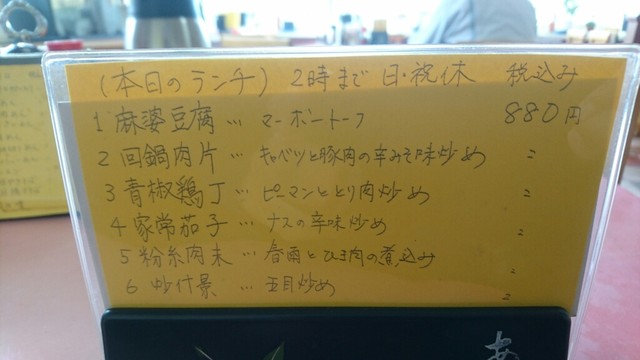 (本日のランチ) 2時まで 日・祝休 税込み
1 麻婆豆腐 … マーボートーフ 880円
2 回鍋肉片 … キャベツと豚肉の辛みそ味炒め 〃
3 青椒鶏丁 … ピーマンととり肉炒め 〃
4 家常茄子 … ナスの辛味炒め 〃
5 粉糸肉末 … 春雨とひき肉の煮込み 〃
6 炒什景 … 五目炒め 〃
あ